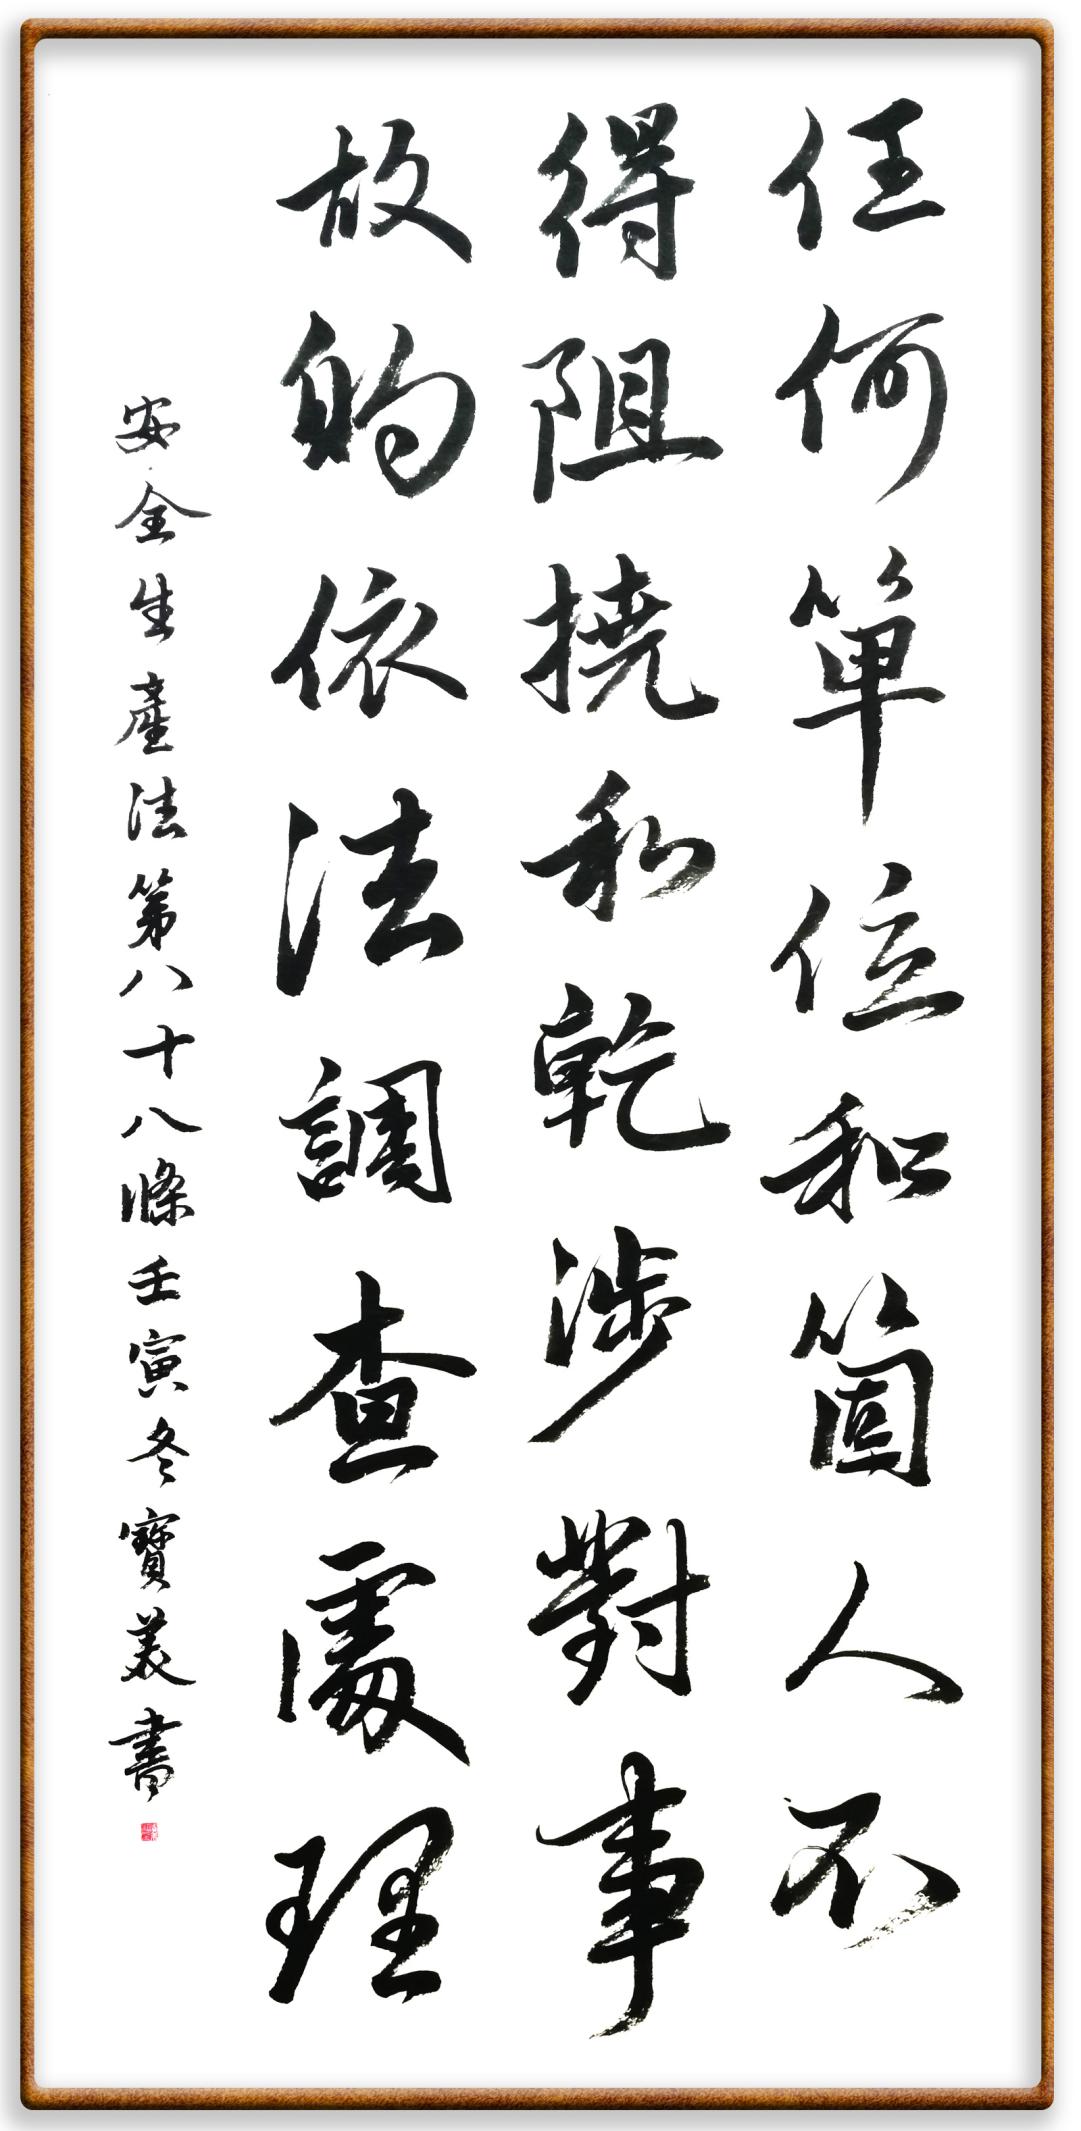 任何單位和箇人不
得阻撓和乾涉對事
故的依法調查處理
安全生產法第八十八條壬寅冬寶美書